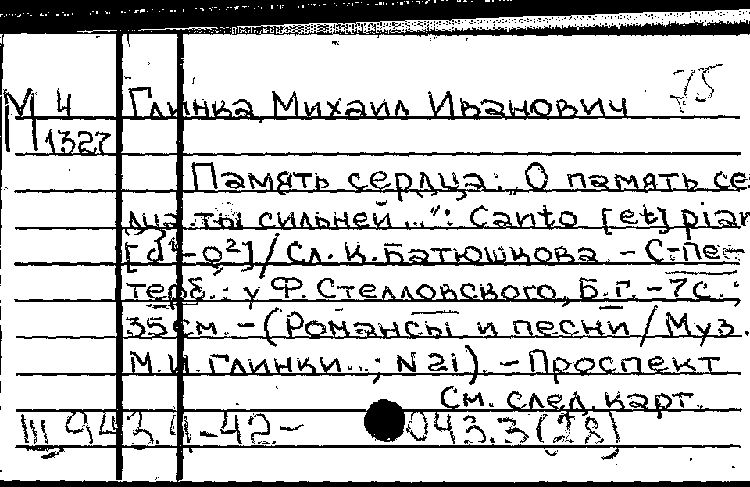 М 4 Глинка, Михаил Иванович 75
1327
Память сердца: „О память се
дца ты сильней...": Canto [et] pian
[d¹-g²] / Сл. К. Батюшкова. - С-пе-
терб.: у Ф. Стелловского, Б.г. - 7с.;
35см. - (Романсы и песни / Муз.
М.И. Глинки...; N 21). - Проспект
См. след. карт.
Щ943.4-42- 043.3(28)